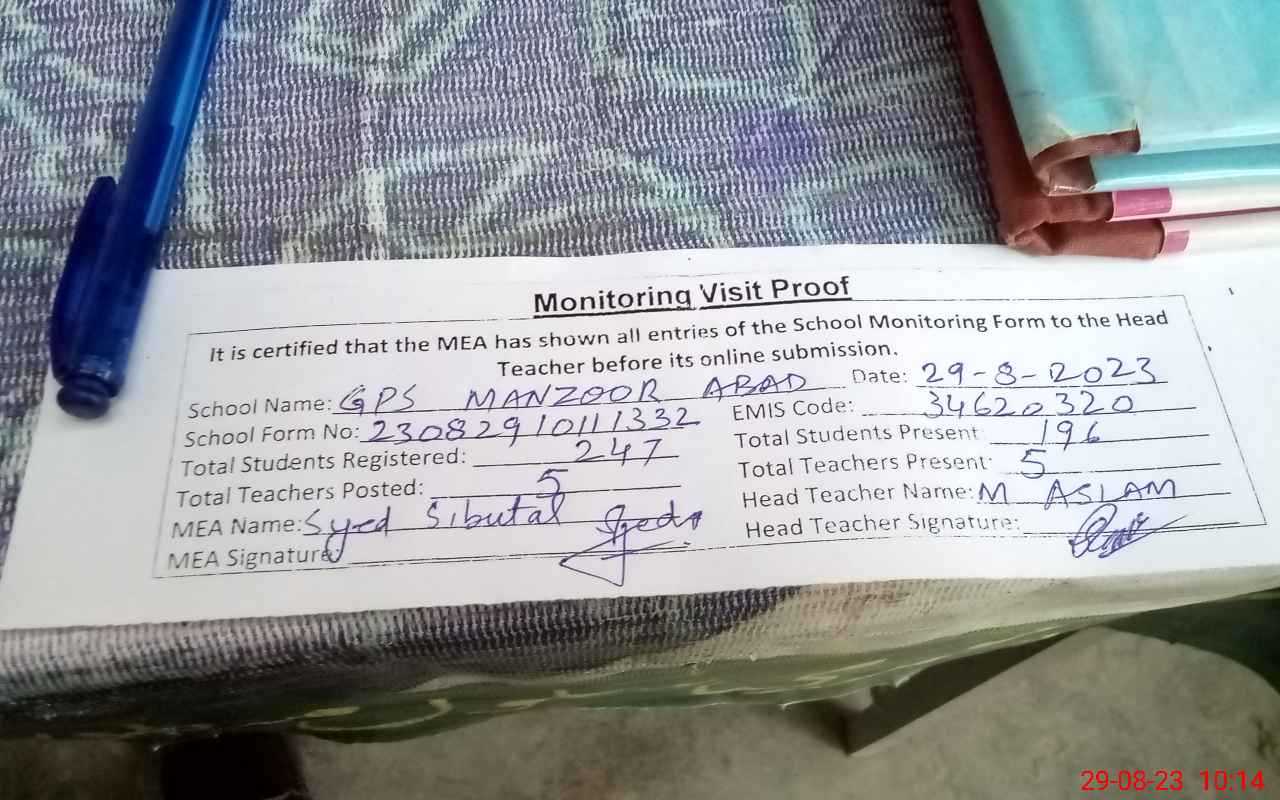 Monitoring Visit Proof
It is certified that the MEA has shown all entries of the School Monitoring Form to the Head
Teacher before its online submission.
School Name: GPS MANZOOR ABAD Date: 29-8-2023
School Form No: 23082910111332 EMIS Code: 34620320
Total Students Registered: 247 Total Students Present: 196
Total Teachers Posted: 5 Total Teachers Present: 5
MEA Name: Syed Sibutal Head Teacher Name: M ASLAM
MEA Signature Head Teacher Signature:
29-08-23 10:14